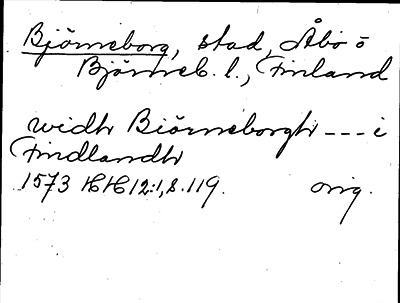 Björneborg, stad, Åbo o
Björneb. l., Finland
widh Biörneborgh --- i
Findlandh
1573 HH 12:1, s. 119. orig.